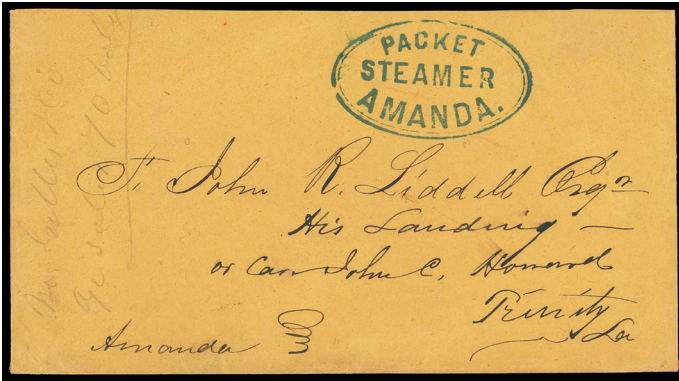 PACKET
STEAMER
AMANDA.
To John R. Liddell Esqr
His Landing
or Care John C.
Trinity
La
Amanda